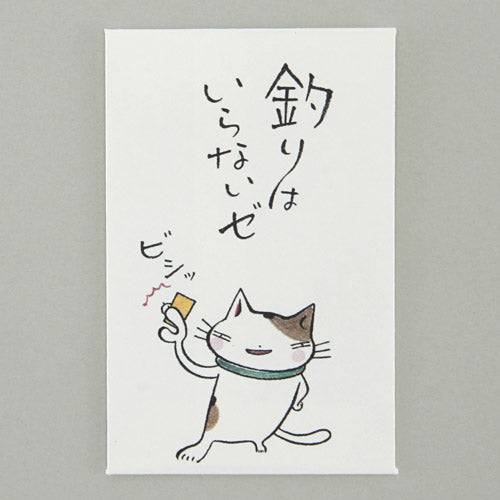 釣りは
いらないゼ
ビシッ